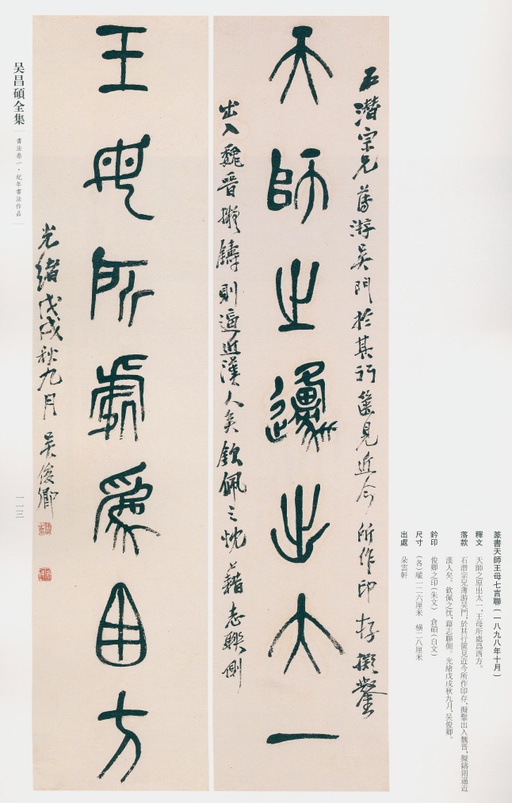 石潛宗兄薄游吳門於其行篋見近今所作印存擬鑿
天師之邍出大一
出入魏晉擬鑄則逼近漢人矣欽佩之忱藉志聯側
王母所處爲西方
光緒戊戌秋九月 吳俊卿
吴昌碩全集
書法卷一·紀年書法作品
一一三
篆書天師王母七言聯(一八九八年十月)
釋文 天師之原出太一,王母所處爲西方。
落款 石潛宗兄薄游吴門,於其行篋見近今所作印存,擬鑿出入魏晋,擬鑄則逼近
漢人矣。欽佩之忱,藉志聯側。光緒戊戌秋九月,吴俊卿。
鈐印 俊卿之印(朱文) 倉碩(白文)
尺寸 (各)縱一二六厘米 橫二八厘米
出處 朵雲軒